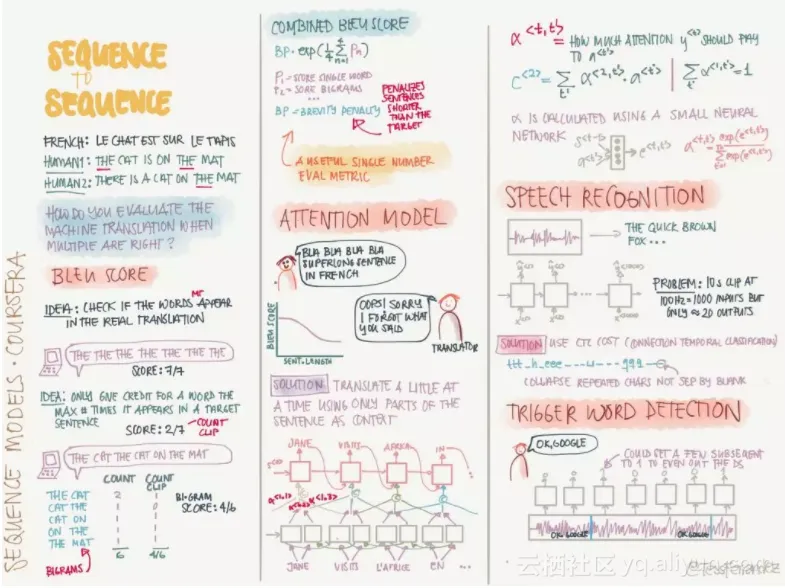 SEQUENCE
TO
SEQUENCE
FRENCH: LE CHAT EST SUR LE TAPIS
HUMAN1: THE CAT IS ON THE MAT
HUMAN2: THERE IS A CAT ON THE MAT
HOW DO YOU EVALUATE THE
MACHINE TRANSLATION WHEN
MULTIPLE ARE RIGHT?
BLEU SCORE
IDEA: CHECK IF THE WORDS APPEAR
IN THE REAL TRANSLATION
THE THE THE THE THE THE THE
SCORE: 7/7
IDEA: ONLY GIVE CREDIT FOR A WORD THE
MAX # TIMES IT APPEARS IN A TARGET
SENTENCE
SCORE: 2/7
COUNT
CLIP
THE CAT THE CAT ON THE MAT
COUNT COUNT
CLIP
THE CAT 2 1
CAT THE 1 0
CAT ON 1 1
ON THE 1 1
THE MAT 1 1
6 4/6
BI-GRAM
SCORE: 4/6
BIGRAMS
SEQUENCE MODELS · COURSERA
COMBINED BLEU SCORE
BP · exp(1/4 Σ Pn)
n=1
4
P1 = SCORE SINGLE WORD
P2 = SCORE BIGRAMS
...
BP = BREVITY PENALTY
PENALIZES
SENTENCES
SHORTER
THAN THE
TARGET
A USEFUL SINGLE NUMBER
EVAL METRIC
ATTENTION MODEL
BLA BLA BLA BLA
SUPERLONG SENTENCE
IN FRENCH
OOPS! SORRY
I FORGOT WHAT
YOU SAID
TRANSLATOR
BLEU SCORE
SENT. LENGTH
SOLUTION: TRANSLATE A LITTLE AT
A TIME USING ONLY PARTS OF THE
SENTENCE AS CONTEXT
JANE VISITS AFRICA IN
...
JANE VISITS L'AFRICE EN ...
α<t,t'> = HOW MUCH ATTENTION y<t> SHOULD PAY
TO a<t'>
C<2> = Σ α<2,t'> · a<t'> | Σ α<1,t'> = 1
t' t'
α IS CALCULATED USING A SMALL NEURAL
NETWORK
s<t-1>
a<t'>
e<t,t'>
α<t,t'> = exp(e<t,t'>)
Σ exp(e<t,t'>)
SPEECH RECOGNITION
THE QUICK BROWN
FOX ...
PROBLEM: 10s CLIP AT
100HZ = 1000 INPUTS BUT
ONLY ≈ 20 OUTPUTS
...
SOLUTION USE CTC COST (CONNECTION TEMPORAL CLASSIFICATION)
COLLAPSE REPEATED CHARS NOT SEP BY BLANK
TRIGGER WORD DETECTION
OK, GOOGLE
COULD SET A FEW SUBSEQUENT
TO 1 TO EVEN OUT THE DS
OK, GOOGLE OK, GOOGLE